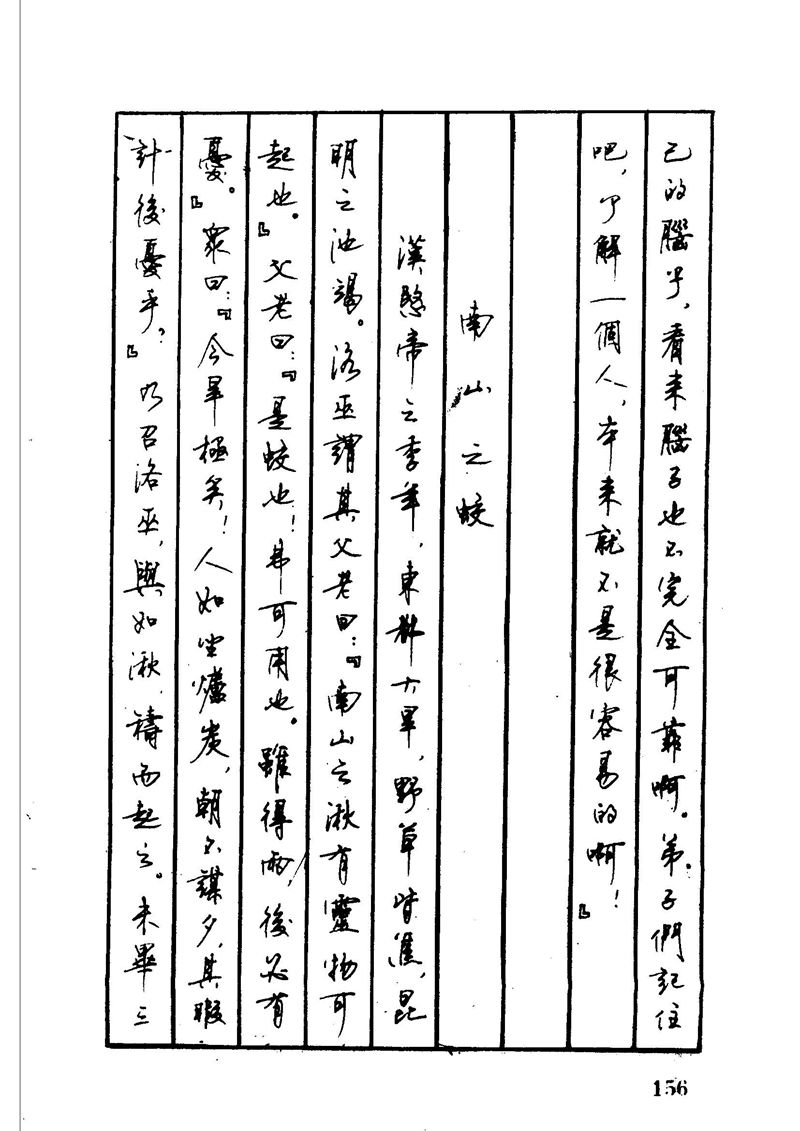 己的腦子，看来腦子也不完全可靠啊。弟子們記住
吧，了解一個人，本来就不是很容易的啊！』
南山之蛟
漢愍帝之季年，東都大旱，野草皆焦，昆
明之池竭。洛巫謂其父老曰：『南山之湫有靈物可
起也。』父老曰：『是蛟也！弗可用也。雖得雨，後必有
憂。』衆曰：『今旱極矣！人如坐爐炭，朝不謀夕，其暇
計後憂乎？』乃召洛巫，與如湫，禱而起之。未畢三
156